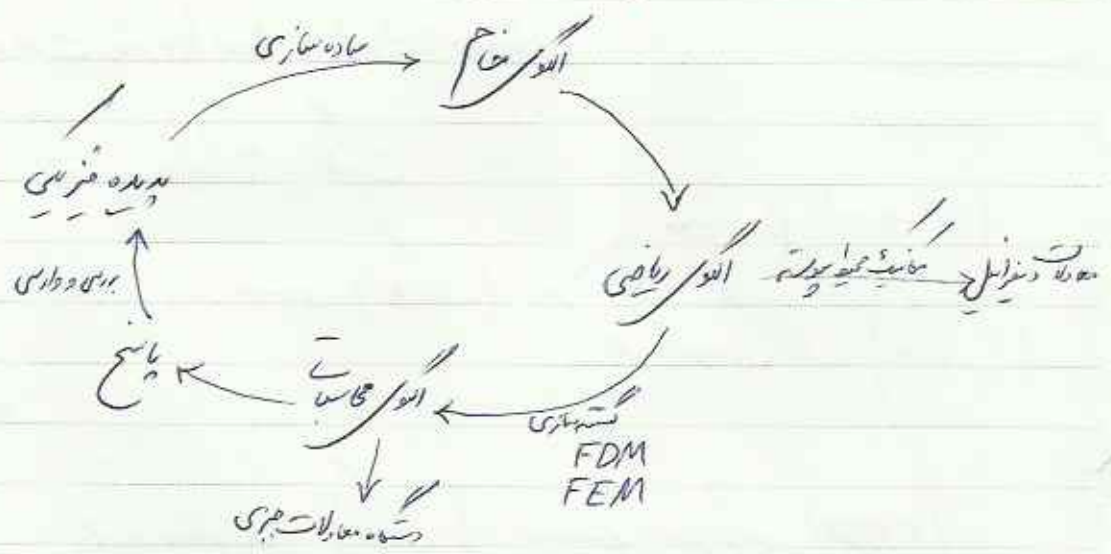 ساده سازی
الگوی مفاهیم
پدیده فیزیکی
الگوی ریاضی
مکانیک محیط پیوسته
معادلات دیفرانسیل
بررسی و وارسی
پاسخ
الگوی محاسباتی
گسسته سازی
FDM
FEM
دستگاه معادلات جبری